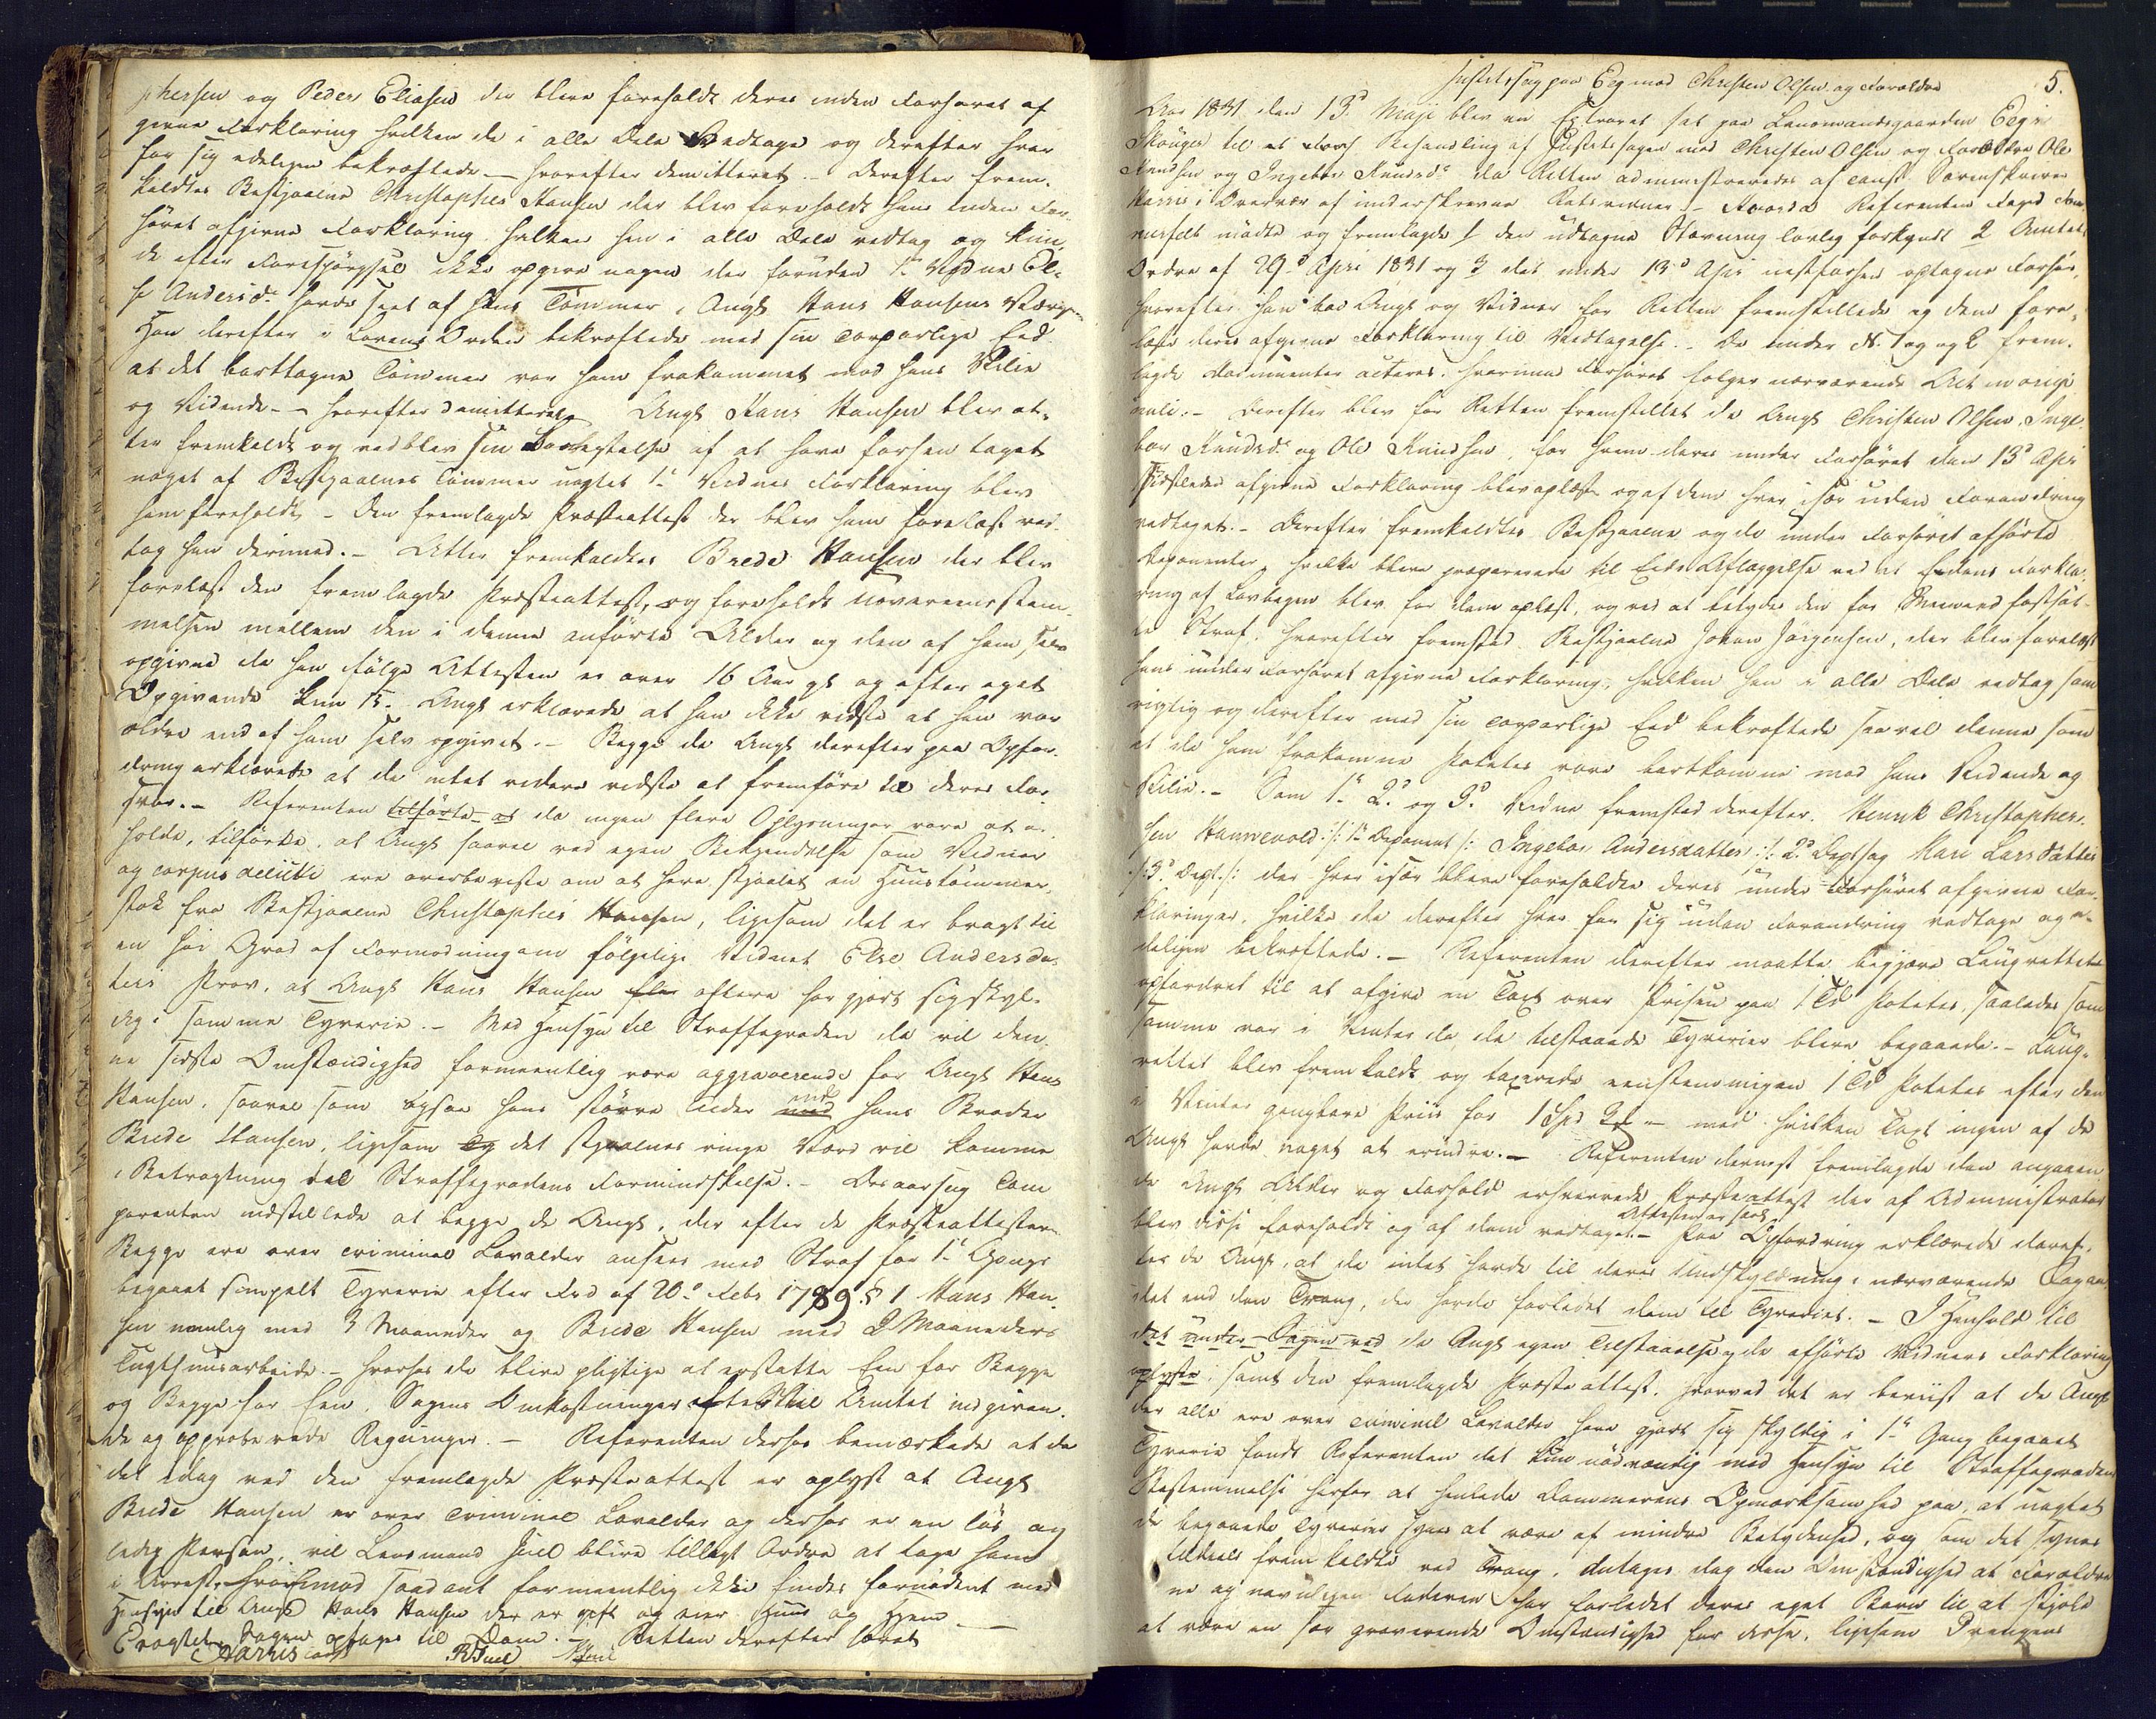 phersen og Peder Eliasen der bleve foreholdt deres under Forhøret af
givne Forklaring hvilken de i alle Dele vedtage og derefter hver
for sig edeligen bekræftede – hvorefter demitteret. – Derefter frem-
kaldtes Bestjaalne Christopher Hansen der blev foreholdt hans under For-
høret afgivne Forklaring hvilken han i alle Dele vedtog og kun-
de efter Forespørgsel ikke opgive nogen der foruden 1te Vidne El-
se Andersd: havde seet af hans Tømmer i Angs Hans Hansens Værge
Han derefter i Lovens Orden bekræftede med sin corporlige Eed
at det borttagne Tømmer var ham frakommet mod hans Villie
og Vidende – hvorefter demitteret. Angs Hans Hansen blev at-
ter fremkaldt og vedblev sin Benegtelse af at have forhen taget
noget af Bestjaalnes Tømmer uagtet 1te Vidnes Forklaring blev
ham foreholdt. – Den fremlagde Præsteattest der blev ham forelæst ved-
tog han derimod. – Atter fremkaldtes Brede Hansen der blev
forelæst den fremlagde Præsteattest, og foreholdt uovereensstem-
melsen mellem den i denne anførte Alder og den af ham selv
opgivne da han ifølge Attesten er over 16 Aar gl og efter eget
Opgivende kun 15. Angs erklærede at han ikke vidste at han var
ældre end af ham selv opgivet. – Begge de Angs derefter paa Opfor-
dring erklærede at de intet videre vidste at fremføre til deres For-
svar. – Referenten tilførte at da ingen flere Oplysninger vare at er-
holde, tilførte, at Angs saavel ved egen Bekjendelse som Vidner
og corpus delicti ere overbeviste om at have stjaalet en Huustømmer-
stok fra Bestjaalne Christopher Hansen, ligesom det er bragt til
en høi Grad af Formodning om følgelig Vidnet Else Andersdat-
ters Prov, at Angs Hans Hansen fler oftere har gjort sig skyl-
dig i samme Tyverie. – Med Hensyn til Straffegraden da vil den-
ne sidste Omstændighed formeentlig være aggraverende for Angs Hans
Hansen, saavel som ogsaa hans større Alder end hans Broder
Brede Hansen, ligesom og det stjaalnes ringe Værd vil komme
i Betragtning ved Straffegradens Formindskelse. – Desaarsag Com
parenten indstillede at begge de Angs, der efter de Præsteattester
Begge ere over criminel Lavalder ansees med Straf for 1te Gangs
begaaet simpelt Tyverie efter Frd af 20de Febr 1789 § 1 Hans Han-
sen nemlig med 3 Maaneder og Brede Hansen med 2 Maaneders
Tugthuusarbeide. – hvorhos de blive pligtige at erstatte Een for Begge
og Begge for Een, Sagens Omkostninger efter til Amtet indgiven-
de og approberede Regninger. – Referenten derhos bemærkede at da
det idag ved den fremlagde Præsteattest er oplyst at Angs
Brede Hansen er over criminel Lavalder og derhos er en løs og
ledig Person, vil Lensmand Juel blive tillagt Ordre at tage ham
i Arrest, hvorimod saadant formeentlig ikke findes fornødent med
Hensyn til Angs Hans Hansen der er gift og eier Huus og Hjem –
Eragtet Sagen optages til Dom. – Retten derefter hævet
Harris const
RJuel
Justitssag paa Eeg mod Christen Olsen og Forældre
5.
Aar 1831 den 13de Maji blev en Extraret sat paa Lensmandsgaarden Eeg i
Skouger til at foretages Behandling af Justitssagen mod Christen Olsen og Forældre Ole
Knudsen og Ingebor Knudsd: da Retten administreredes af const. Sorenskriver
Harris i Overvær af underskrevne Retsvidner – Hvorda Referenten Foged
mødte og fremlagde 1 den udtagne Stævning lovlig forkyndt 2 Amtets
Ordre af 29de April 1831 og 3 det under 13de April nestforhen optagne Forhør,
hvorefter han bad Angs og Vidner for Retten fremstillede og dem fore-
læst deres afgivne Forklaring til Vedtagelse. – De under N. 1 og og 2 frem-
lagde Documenter acteres. hvorimod Forhøret følger nærværende Act in origi-
nali. – Derefter blev for Retten fremstillet de Angs Christen Olsen, Inge-
bor Knudsd: og Ole Knudsen, for hvem deres under Forhøret den 13de Apr
sidstleden afgivne Forklaring blev oplæst og af dem hver især uden Forandring
vedtaget. – Derefter fremkaldtes Bestjaalne og de under Forhøret afhørte
Deponenter, hvilke bleve præparerede til Eeds Aflæggelse ved at Eedens Forkla-
ring af Lovbogen blev for dem oplæst, og ved at betydes den for Meeneed fastsat-
te Straf. hvorefter fremstod Bestjaalne Johan Jørgensen, der blev forelæst
hans under Forhøret afgivne Forklaring, hvilken han i alle Dele vedtog som
rigtig og derefter med sin corporlige Eed bekræftede saavel denne som
at de ham frakomne Poteter vare bortkomne mod hans Vidende og
Villie. – Som 1te 2de og 3de Vidne fremstod derefter. Henrik Christopher-
sen Hannevold :/: 1te Deponent /: Ingebor Andersdatter :/: 2de Dept og Kari Larsdatter
:/: 3de Dept. /: der hver især bleve foreholdte deres under Forhøret afgivne For-
klaringer, hvilke de derefter hver for sig uden Forandring vedtoge og e-
deligen bekræftede. – Referenten derefter maatte begjære Laugrettet
opfordret til at afgive en Taxt over Prisen paa 1 Td Poteter, saaledes som
samme var i Vinter da de tilstaaede Tyverier bleve begaaede. – Laug-
rettet blev fremkaldt og taxerede eenstemmigen 1 Td Poteter efter den
i Vinter gangbare Priis for 1 Spd – mod hvilken Taxt ingen af de
Angs havde noget at erindre. – Referenten dernest fremlagde den angaaen
de Angs Alder og Forhold erhvervede Præsteattest der af Administrator
Attesten er saal:
blev disse foreholdt og af dem vedtaget. – Paa Opfordring erklærede deref-
ter de Angs, at de intet havde til deres Undskyldning i nærværende Sag an-
det end den Trang, der havde forledet dem til Tyveriet. – I Henhold til
det under Sagen ved de Angs egen Tilstaaelse, de afhørte Vidners Forklaring
oplyste, samt den fremlagde Præsteattest. hvorved det er beviist at de Angs
der alle ere over criminel Lavalder have gjort sig skyldig i 1te Gang begaaet
Tyverie fandt Referenten det kun nødvendig med Hensyn til Straffegradens
Bestemmelse herfor at henlede Dommerens Opmærksomhed paa, at uagtet
de begaaede Tyverier synes at være af mindre Betydenhed, og som det synes
tildeels fremkaldte ved Trang, antages dog den Omstændighed at Forældre
ne og navnligen Faderen har forledet deres eget Barn til at stjæle
at være en saa graverende Omstændighed for disse, ligesom Drengens